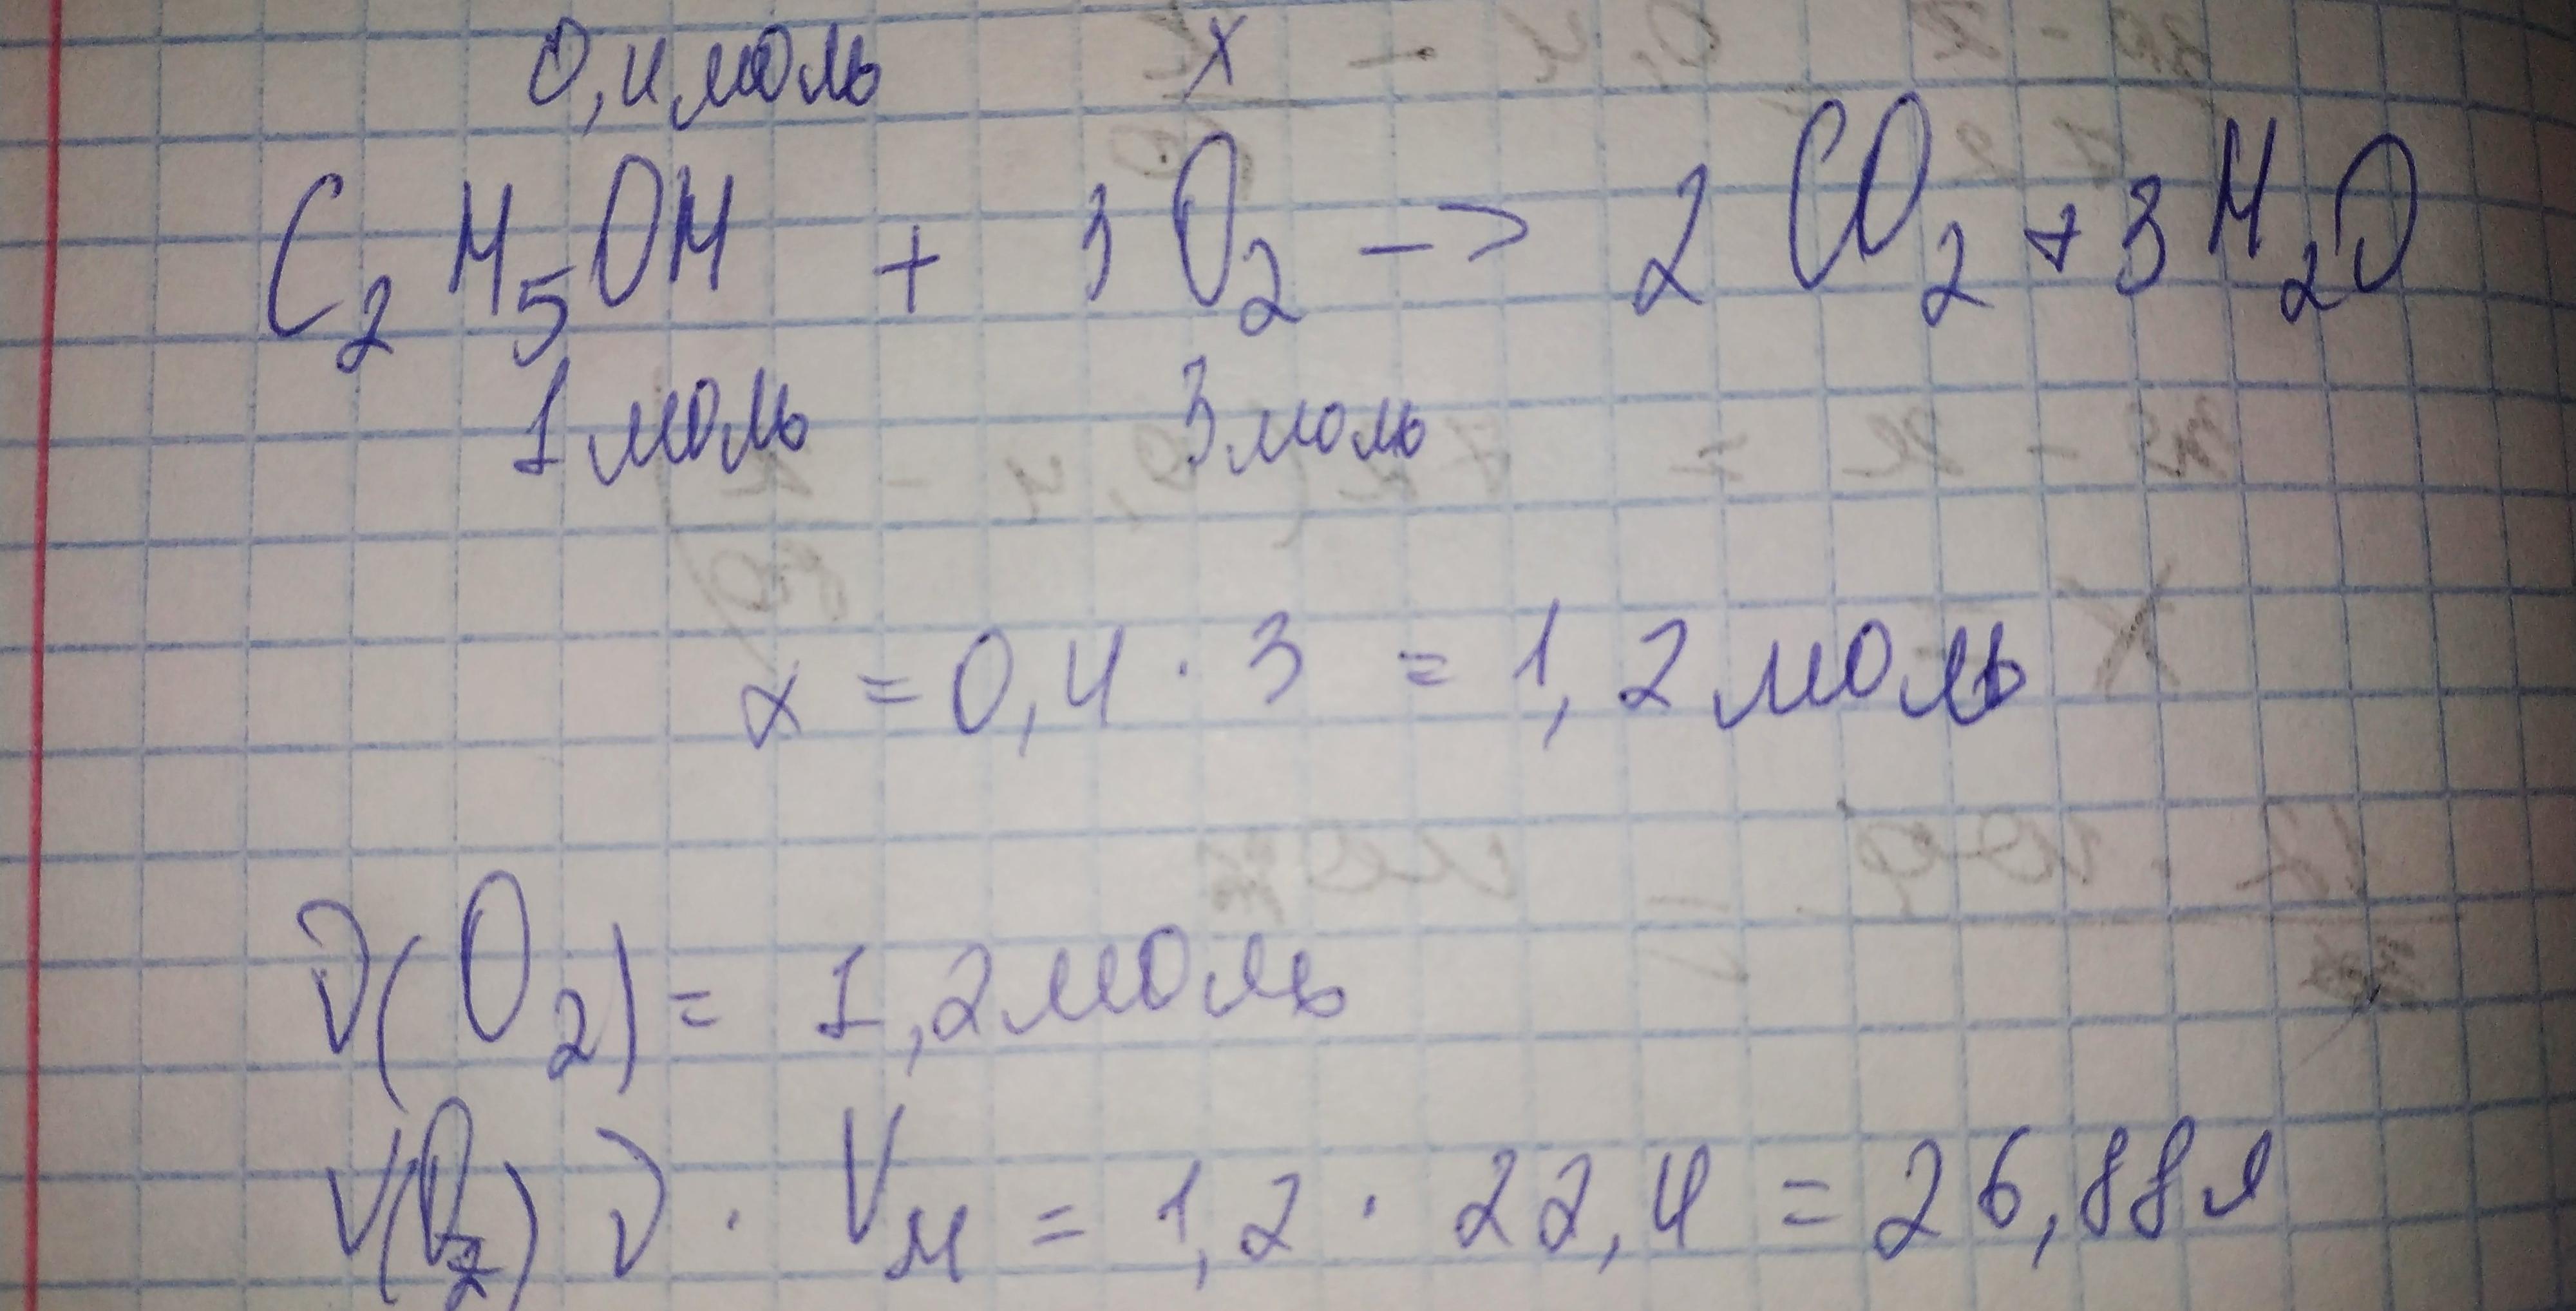 0,4 моль x
C₂H₅OH + 3 O₂ -> 2 CO₂ + 3 H₂O
1 моль 3 моль
x = 0,4 · 3 = 1,2 моль
ν(O₂) = 1,2 моль
V(O₂) ν · Vм = 1,2 · 22,4 = 26,88 л